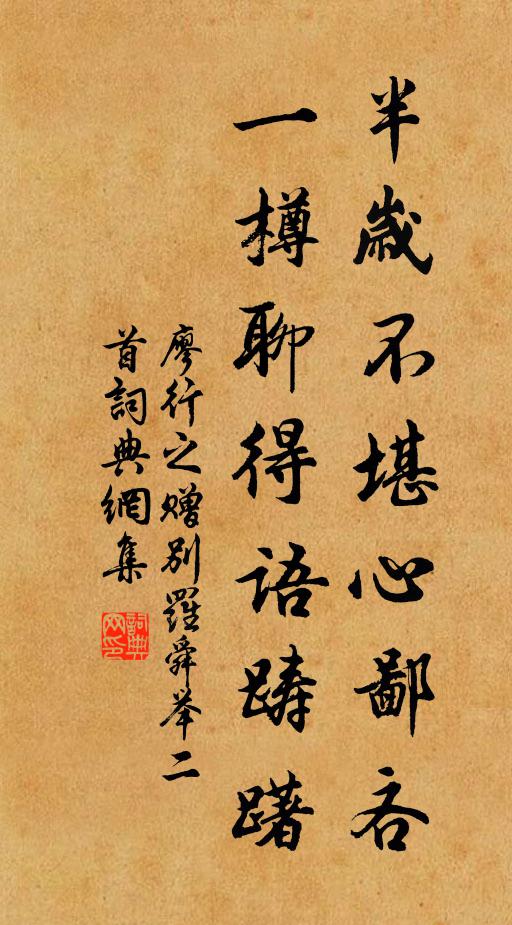 半歲不堪心鄙吝
一樽聊得語躊躇
廖行之贈別羅舜举二
首詞典網集
詞典
网印